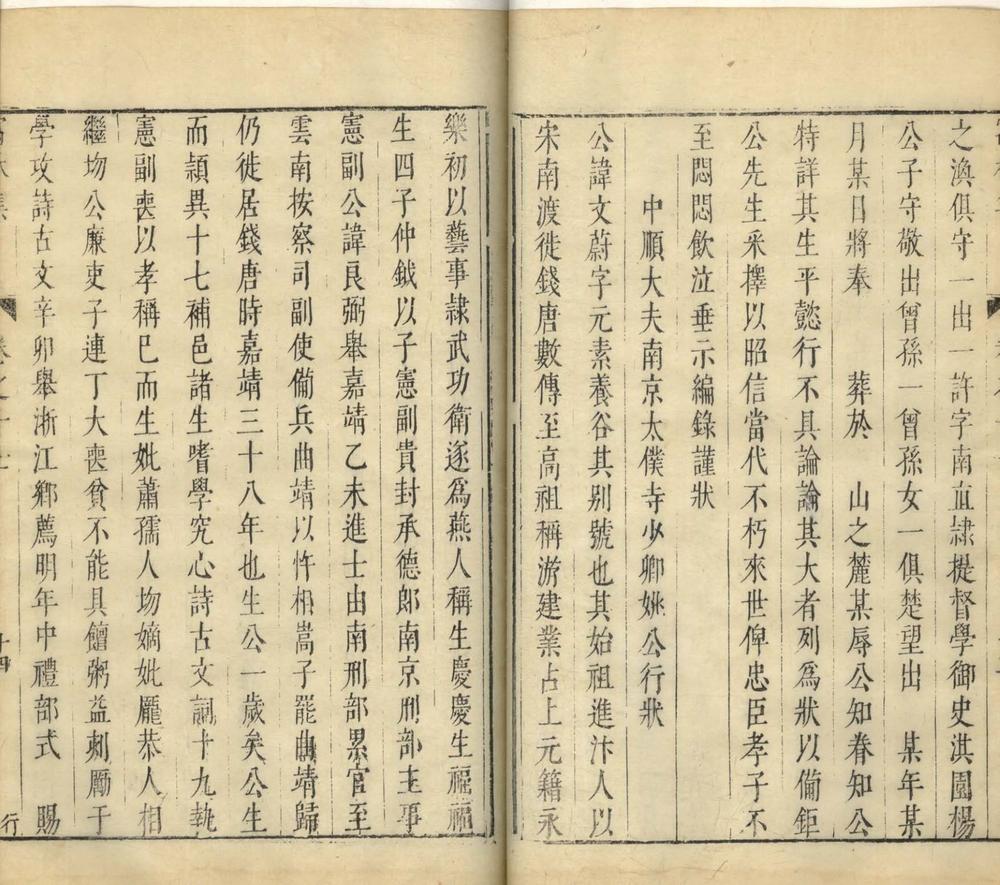 之渙俱守一出一許字南直隷提督學御史淇園楊
公子守敬出曾孫一曾孫女一俱楚望出　某年某
月某日將奉　　葬於　山之麓某辱公知眷知公
特詳其生平懿行不具論論其大者列爲狀以備鉅
公先生采擇以昭信當代不朽來世俾忠臣孝子不
至悶悶飲泣垂示編錄謹狀
中順大夫南京太僕寺少卿姚公行狀
公諱文蔚字元素養谷其别號也其始祖進汴人以
宋南渡徙錢唐數傳至高祖稱游建業占上元籍永
樂初以藝事隷武功衛逐爲燕人稱生慶慶生福福
生四子仲鉞以子憲副貴封承德郎南京刑部主事
憲副公諱良弼舉嘉靖乙未進士由南刑部累官至
雲南按察司副使備兵曲靖以忤相嵩子罷曲靖歸
仍徙居錢唐時嘉靖三十八年也生公一歲矣公生
而頴異十七補邑諸生嗜學究心詩古文詞十九執
憲副喪以孝稱巳而生妣蕭孺人坳嫡妣龎恭人相
繼坳公廉吏子連丁大喪貧不能具饘粥益刺勵于
學攻詩古文辛卯舉浙江鄉薦明年中禮部式　賜
卷之十
十四
行